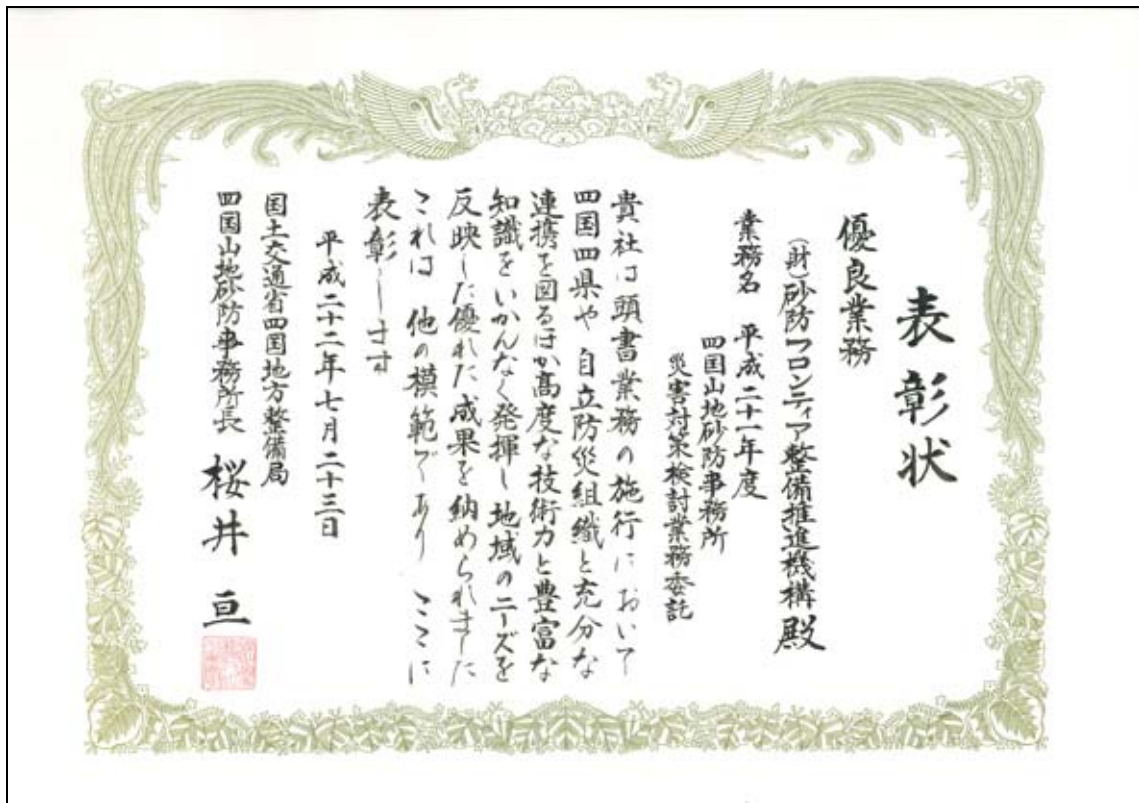 表彰状
優良業務
（財）砂防フロンティア整備推進機構 殿
業務名 平成二十一年度
四国山地砂防事務所
災害対策検討業務委託
貴社は頭書業務の施行において
四国四県や自立防災組織と充分な
連携を図るほか高度な技術力と豊富な
知識をいかんなく発揮し地域のニーズを
反映した優れた成果を納められました
これは 他の模範であり ここに
表彰します
平成二十二年七月二十三日
国土交通省四国地方整備局
四国山地砂防事務所長 桜井 亘